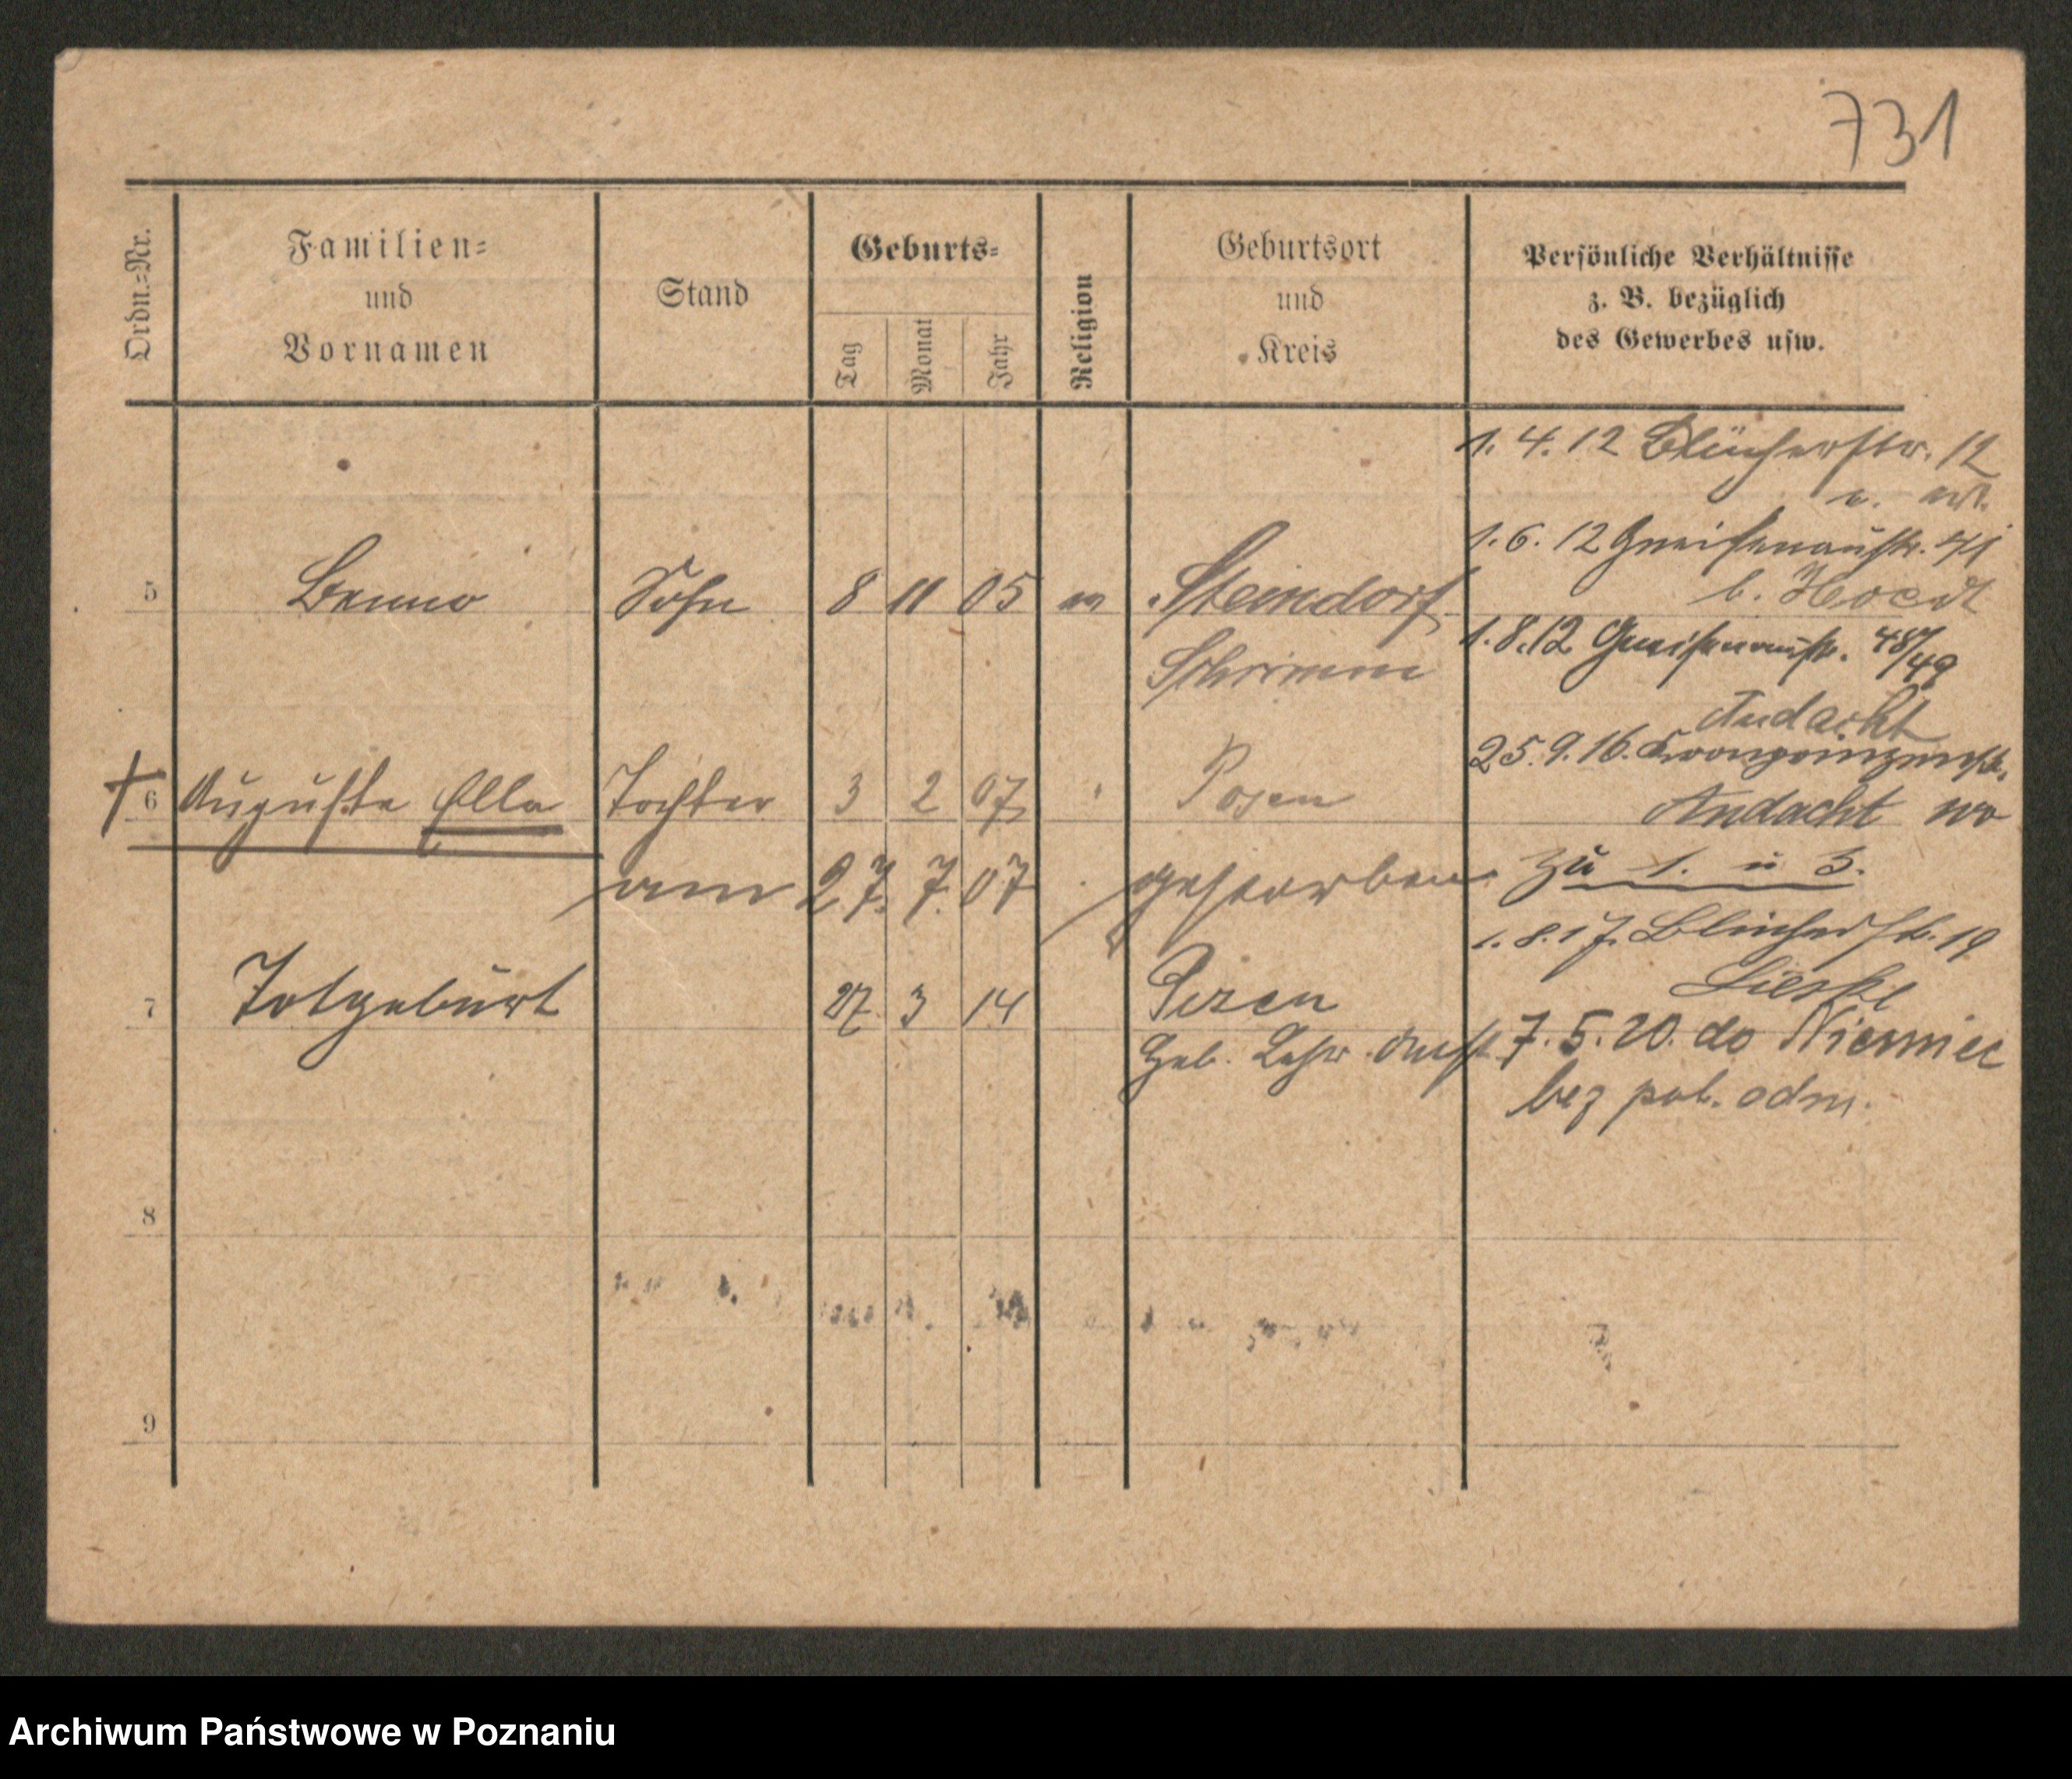 731
Ordn.=Nr.
Familien=
und
Vornamen
Stand
Geburts=
Tag
Monat
Jahr
Religion
Geburtsort
und
Kreis
Persönliche Verhältnisse
z. B. bezüglich
des Gewerbes usw.
1. 4. 12 Blücherstr. 12
1. 6. 12 Gneisenaustr. 41
5 Benno Sohn 8 11 05 Steindorf
1. 8. 12 Gneisenaustr. 48/49
Schrimm
Andacht
25. 9. 16. Kronprinzenstr.
6 Auguste Ella Tochter 3 2 07 Posen
Andacht
am 27. 7. 07 gestorben
zu 1. u 3.
1. 8. 17. Blücherstr. 19
7 Totgeburt 27. 3 14 Posen
7. 5. 20. do Niemiec
Geb.
bez pol. odm.
8
9
Archiwum Państwowe w Poznaniu